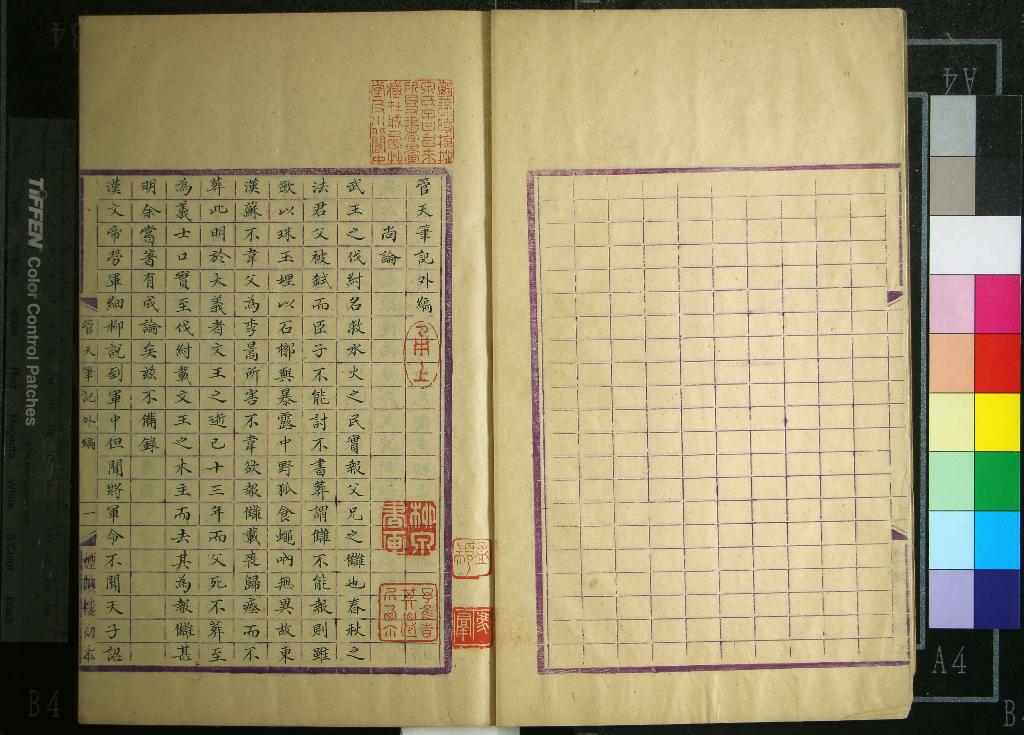 管天筆記外編
尚論
武王之伐紂名救水火之民實報父兄之讎也春秋之
法君父被弑而臣子不能討不書葬謂讎不能報則雖
歛以珠玉埋以石槨與暴露中野狐食蠅吶無異故東
漢蘇不韋父為李暠所害不韋欲報讎載喪歸瘞而不
葬此明於大義者文王之逝已十三年而父死不葬至
為義士口實至伐紂載文王之木主而去其為報讎甚
明余嘗著有成論矣茲不備錄
漢文帝勞軍細柳說到軍中但聞將軍令不聞天子詔
管天筆記外編
一
煙嶼樓初本
柳泉書画
TIFFEN Color Control Patches
A4
A4
B4